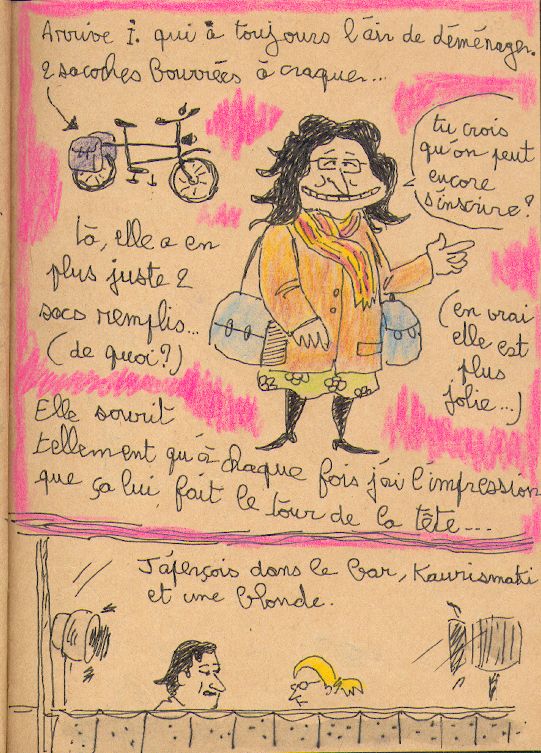 Arrive I. qui a toujours l'air de déménager.
2 sacoches bourrées à craquer...
tu crois
qu'on peut
encore
s'inscrire?
là, elle a en
plus juste 2
sacs remplis...
(de quoi?)
(en vrai
elle est
plus
jolie...)
Elle sourit
tellement qu'à chaque fois j'ai l'impression
que ça lui fait le tour de la tête...
J'aperçois dans le bar, Kaurismaki
et une blonde.